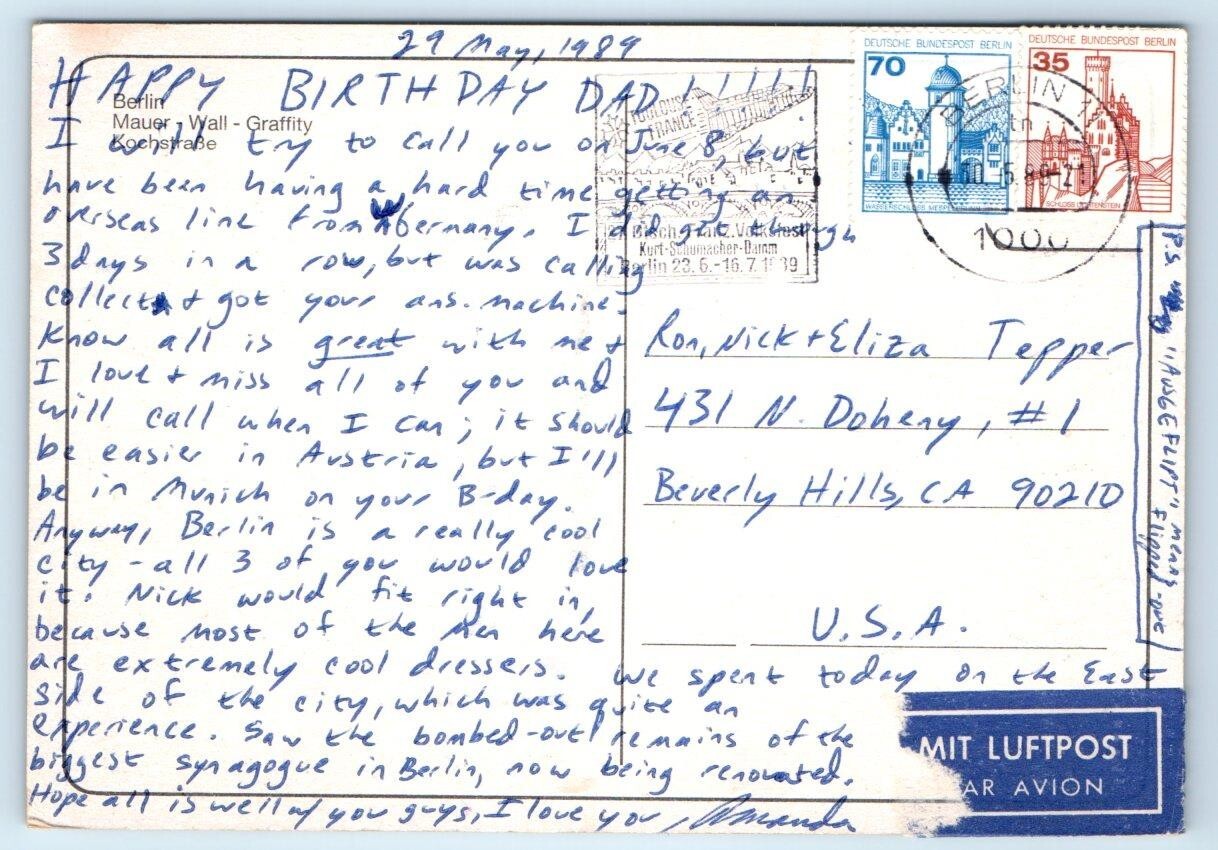 29 May, 1989
HAPPY BIRTHDAY DAD!!!!!!
Berlin
Mauer - Wall - Graffity
Kochstraße
I will try to call you on June 8, but
have been having a hard time getting an
overseas line from W Germany. I did get through
3 days in a row, but was calling
collect + got your ans. machine.
Know all is great with me +
I love + miss all of you and
will call when I can; it should
be easier in Austria, but I'll
be in Munich on your B-day.
Anyway, Berlin is a really cool
city - all 3 of you would love
it. Nick would fit right in,
because most of the men here
are extremely cool dressers. We spent today on the East
side of the city, which was quite an
experience. Saw the bombed-out remains of the
biggest synagogue in Berlin, now being renovated.
Hope all is well w/ you guys, I love you, Amanda
TOULOUSE
FRANCE
Dtsch.-Franz. Volksfest
Kurt-Schumacher-Damm
Berlin 23.6.-16.7.1989
DEUTSCHE BUNDESPOST BERLIN
70
WASSERSCHLOSS MESPELBRUNN
DEUTSCHE BUNDESPOST BERLIN
35
SCHLOSS LICHTENSTEIN
BERLIN 1
1000
Ron, Nick + Eliza Tepper
431 N. Doheny, #1
Beverly Hills, CA 90210
U.S.A.
P.S. "AUSGEFLIPPT" means
flipped-out!
MIT LUFTPOST
AR AVION